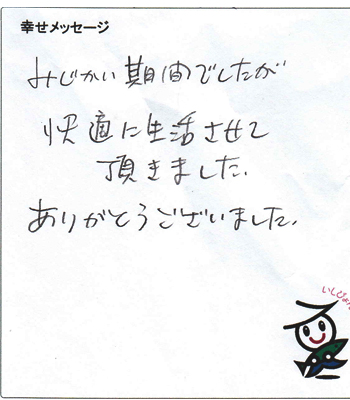 幸せメッセージ
みじかい期間でしたが
快適に生活させて
頂きました.
ありがとうございました.